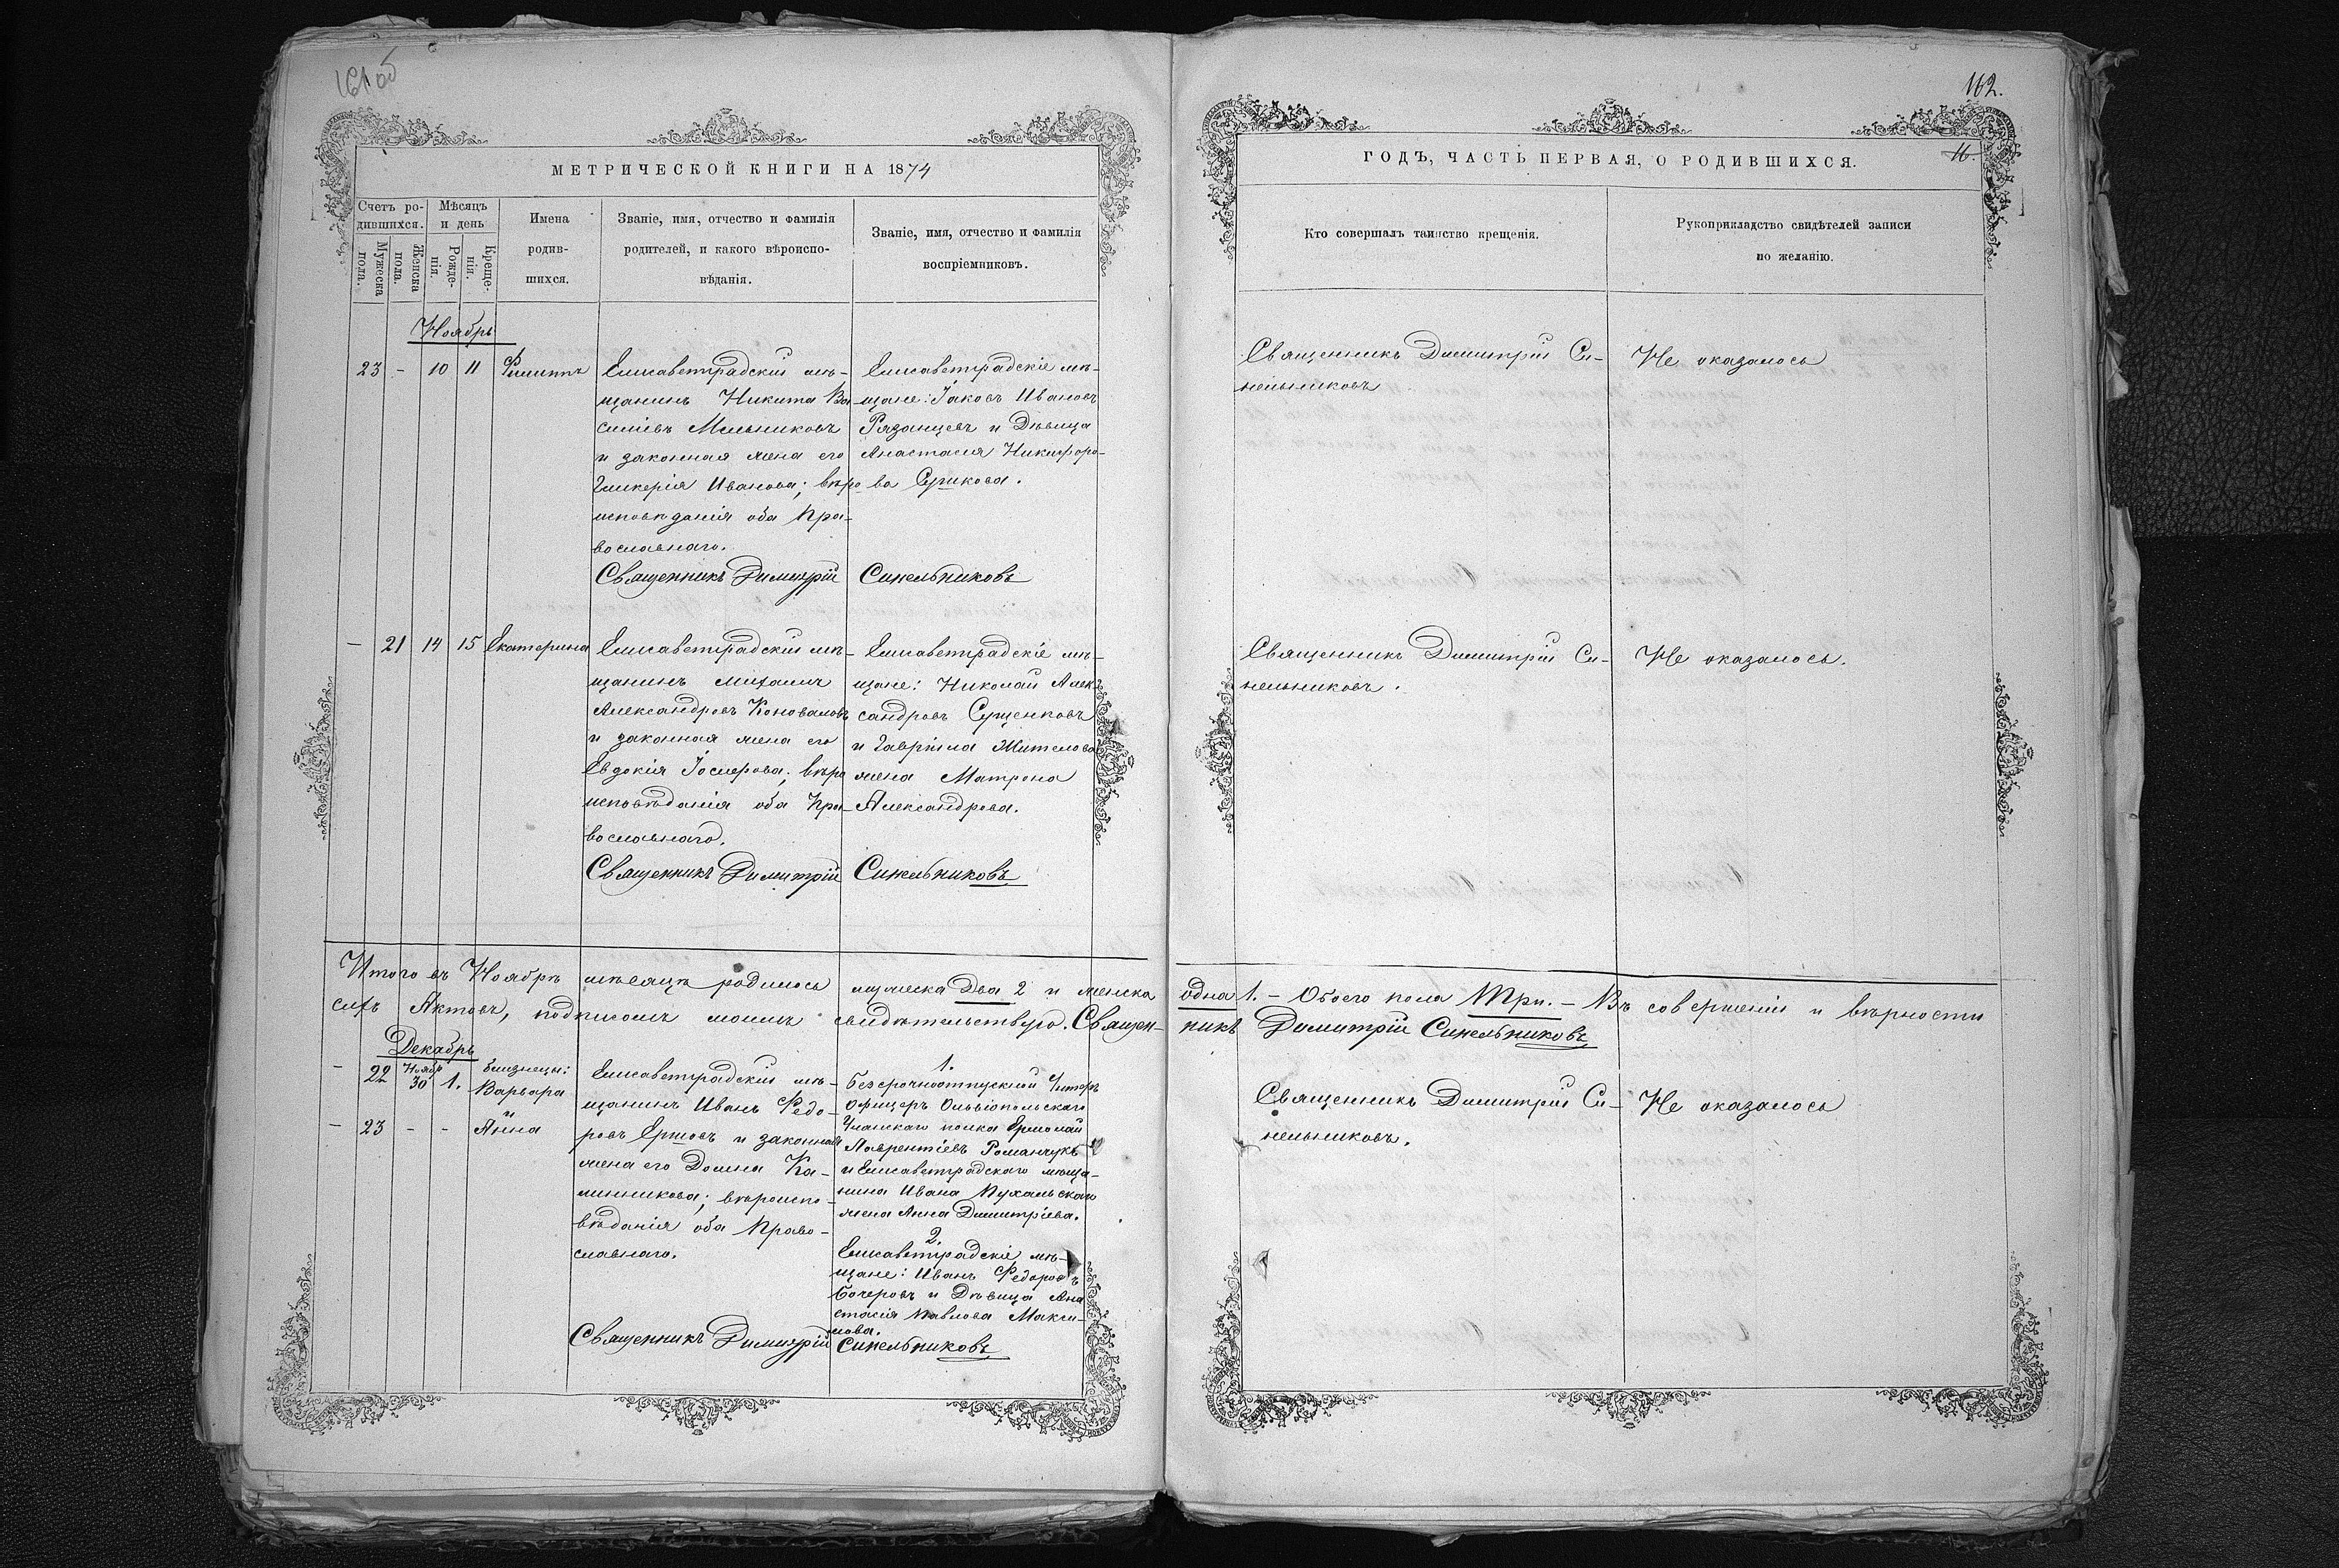 161 об
МЕТРИЧЕСКОЙ КНИГИ НА 1874
Счетъ ро-
дившихся.
Мужеска
пола.
Женска
пола.
Мѣсяцъ
и день
Рожде-
нія.
Креще-
нія.
Имена
родив-
шихся.
Званіе, имя, отчество и фамилія
родителей, и какого вѣроиспо-
вѣданія.
Званіе, имя, отчество и фамилія
воспріемниковъ.
Ноябрь
23 - 10 11 Филиппъ
Елисаветградскій мѣ-
щанинъ Никита Ва-
силіевъ Мельниковъ
и законная жена его
Гликерія Иванова; вѣро
исповѣданія оба Пра-
вославнаго.
Священникъ Димитрій
Елисаветградскіе мѣ-
щане: Іаковъ Ивановъ
Рязанцевъ и Дѣвица
Анастасія Никифоро-
ва
Синельниковъ
— 21 14 15 Екатерина
Елисаветградскій мѣ-
щанинъ Михаилъ
Александровъ Коноваловъ
и законная жена его
Евдокія Іосифова; вѣро
исповѣданія оба Пра-
вославнаго.
Священникъ Димитрій
Елисаветградскіе мѣ-
щане: Николай Алек-
сандровъ Сущенковъ
и Гавріила Жителова
жена Матрона
Александрова.
Синельниковъ
Итого въ Ноябрѣ мѣсяцѣ родилось мужеска Два 2 и женска
сихъ Актовъ, подписомъ моимъ свидѣтельствую. Священ-
Декабрь
- 22 Ноябр 30 1. близнецы:
Варвара
и
- 23 - - Анна
Елисаветградскій мѣ-
щанинъ Иванъ Федо-
ровъ Ершовъ и законная
жена его Домна Ка-
линникова; вѣроиспо-
вѣданія оба Право-
славнаго.
Священникъ Димитрій
1.
Безсрочноотпускной Унтеръ
Офицеръ Ольвіопольскаго
Уланскаго полка Ермолай
Лаврентіевъ Романчукъ
и Елисаветградскаго мѣща-
нина Ивана Пухальскаго
жена Анна Димитріева.
2.
Елисаветградскіе мѣ-
щане: Иванъ Федоровъ
Бочеровъ и Дѣвица Ана
стасія Павлова Макси-
мова.
Синельниковъ
162.
16.
ГОДЪ, ЧАСТЬ ПЕРВАЯ, О РОДИВШИХСЯ.
Кто совершалъ таинство крещенія.
Рукоприкладство свидѣтелей записи
по желанію.
Священникъ Димитрій Си-
нельниковъ
Не оказалось
Священникъ Димитрій Си-
нельниковъ.
Не оказалось.
одна 1. - Обоего пола Три. - Въ совершеніи и вѣрности
никъ Димитрій Синельниковъ
Священникъ Димитрій Си-
нельниковъ.
Не оказалось